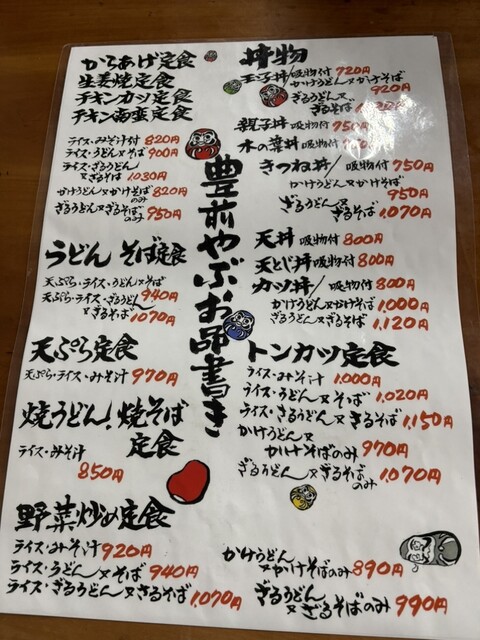 豊前やぶお品書き
からあげ定食
生姜焼定食
チキンカツ定食
チキン南蛮定食
ライス・みそ汁付 820円
ライス・うどん又そば 900円
ライス・ざるうどん
又ざるそば 1.030円
かけうどん又かけそばのみ 820円
ざるうどん又ざるそばのみ 950円
うどん そば定食
天ぷら・ライス・うどん又そば 940円
天ぷら・ライス・ざるうどん
又ざるそば 1070円
天ぷら定食
天ぷら・ライス・みそ汁 970円
焼うどん!焼そば
定食
ライス・みそ汁
850円
野菜炒め定食
ライス・みそ汁 920円
ライス・うどん又そば 940円
ライス・ざるうどん又ざるそば 1,070円
かけうどん
又かけそばのみ 890円
ざるうどん
又ざるそばのみ 990円
丼物
玉子丼/吸物付 720円
かけうどん又かけそば
920円
ざるうどん又
ざるそば
親子丼 吸物付 750円
木の葉丼 吸物付
きつね丼/吸物付 750円
かけうどん又かけそば
950円
ざるうどん又
ざるそば 1.070円
天丼 吸物付 800円
天とじ丼 吸物付 800円
カツ丼/吸物付 800円
かけうどん又かけそば 1.000円
ざるうどん又ざるそば 1,120円
トンカツ定食
ライス・みそ汁 1.000円
ライス・うどん又そば 1,020円
ライス・ざるうどん又ざるそば 1,150円
かけうどん又
かけそばのみ 970円
ざるうどん又ざるそばのみ 1,070円